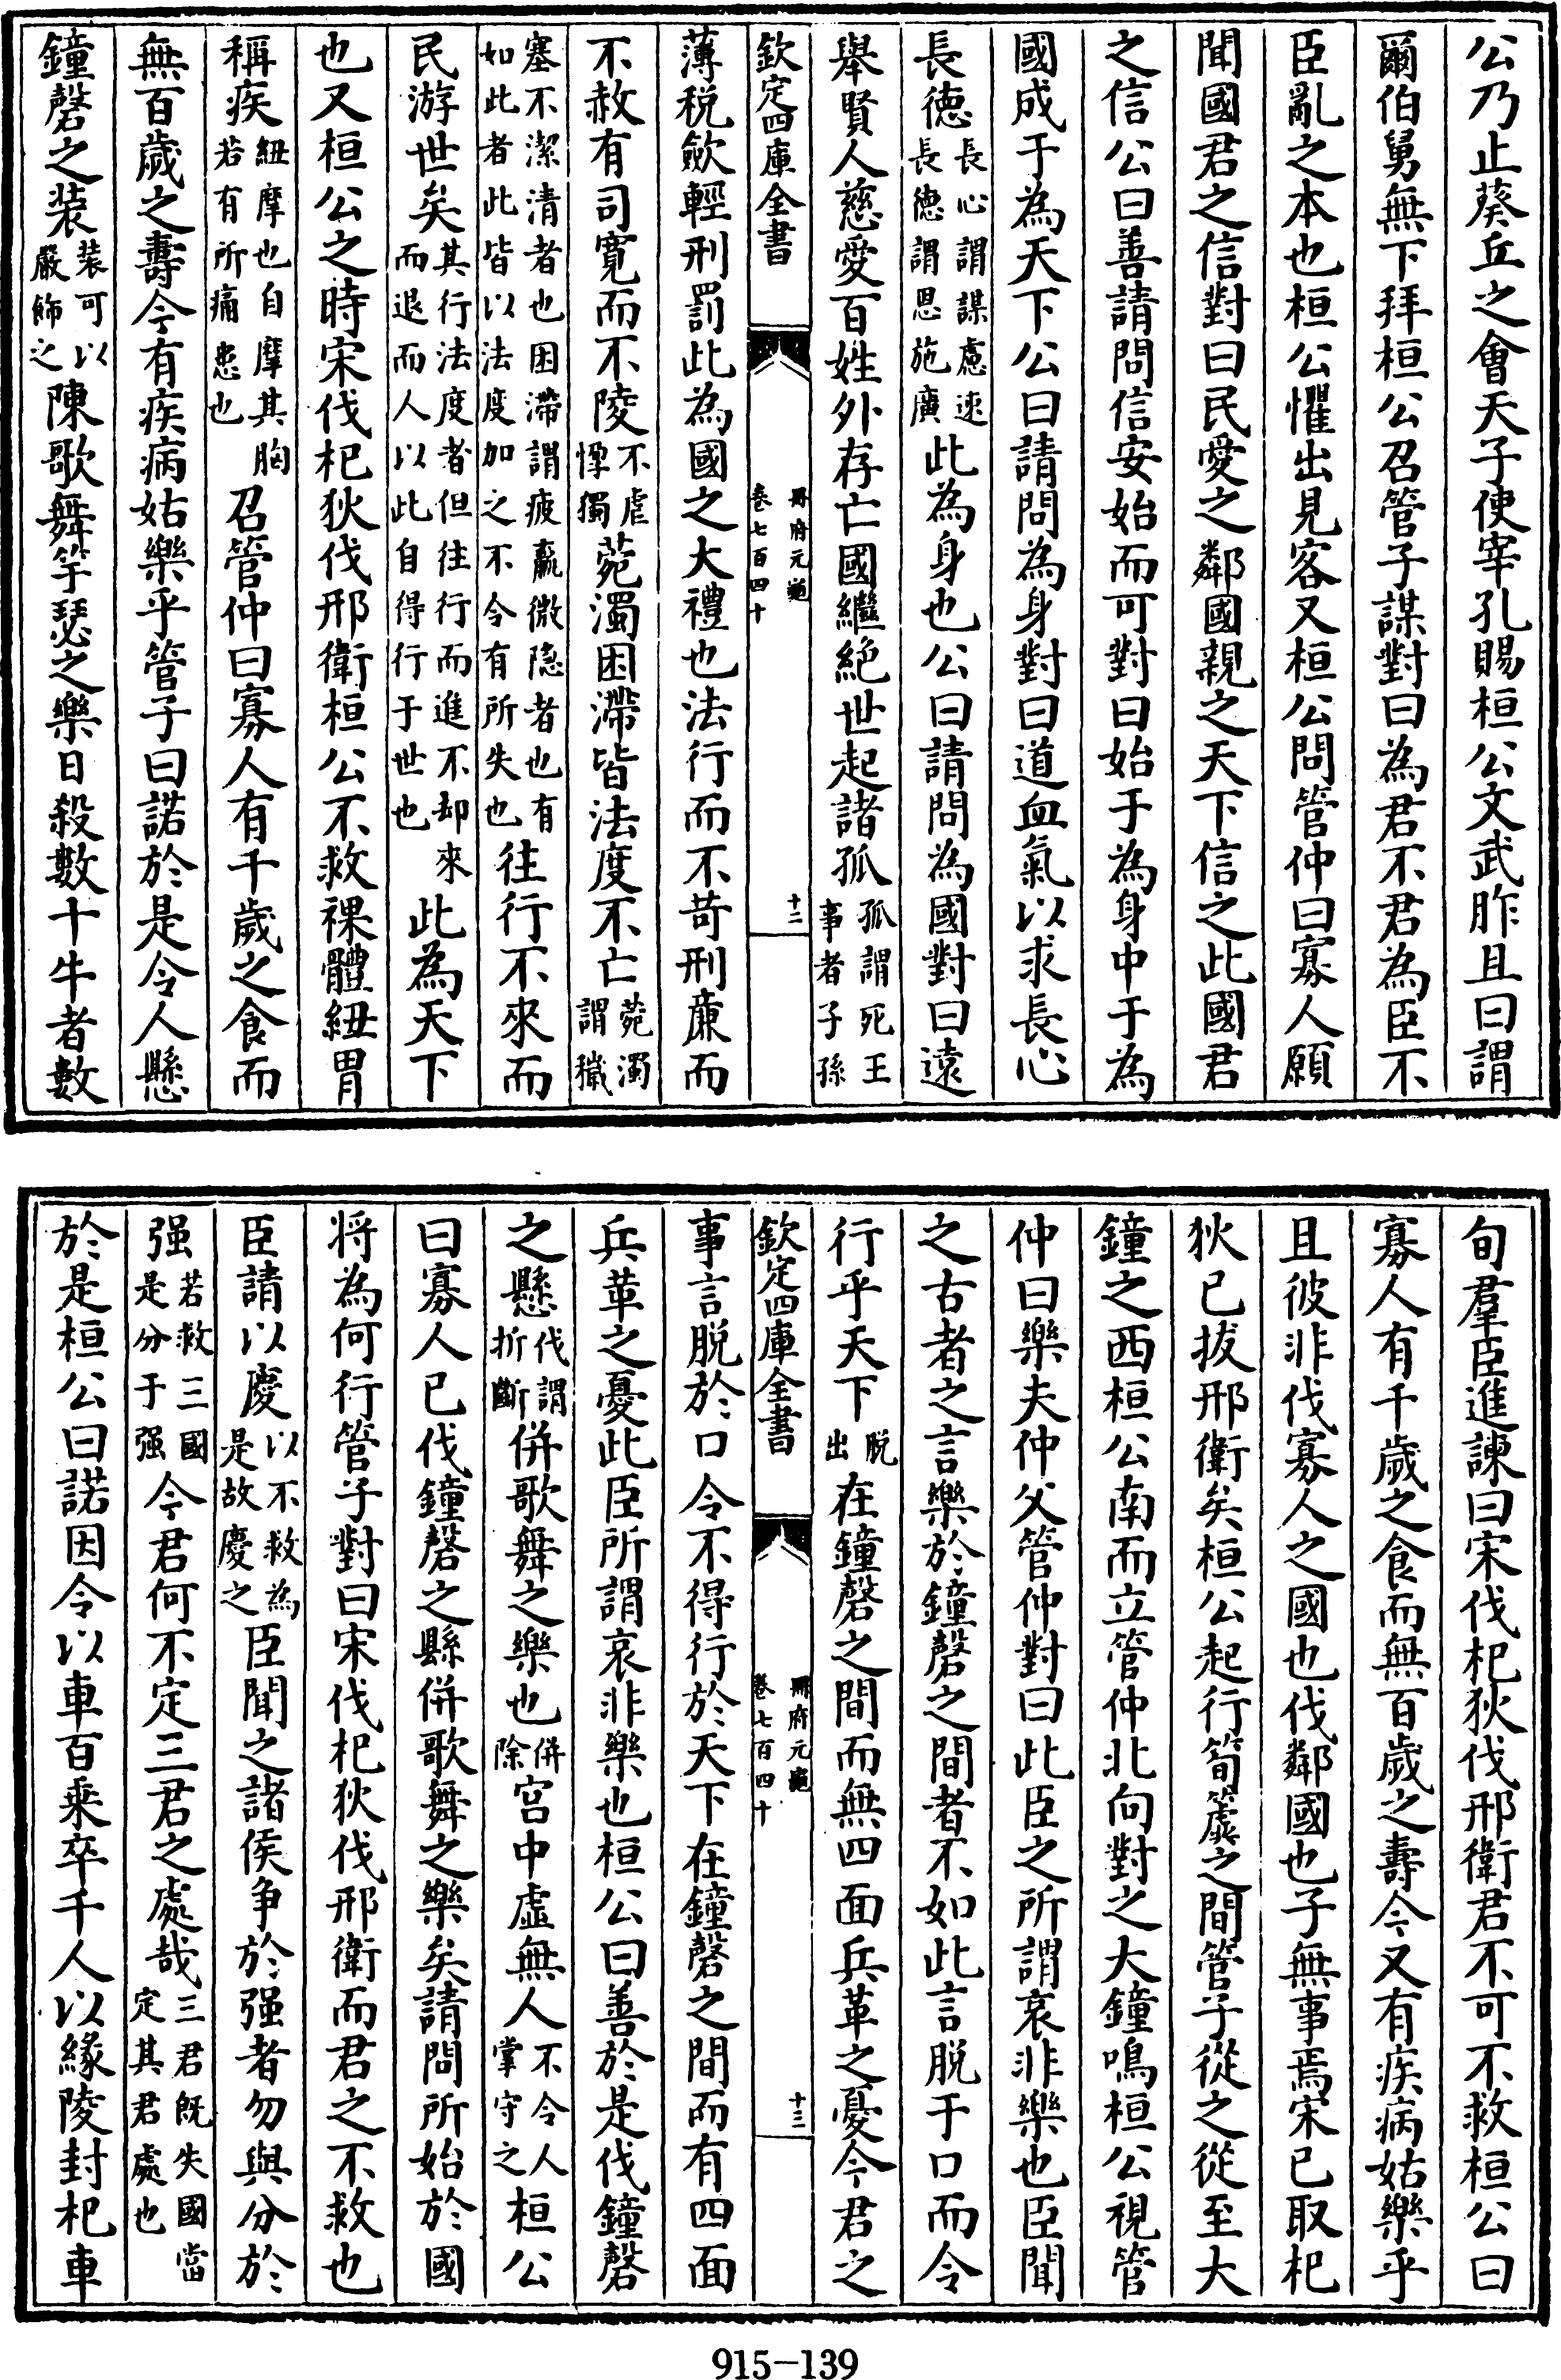 公乃止葵丘之會天子使宰孔賜桓公文武胙且曰謂
爾伯舅無下拜桓公召管子謀對曰為君不君為臣不
臣亂之本也桓公懼出見客又桓公問管仲曰寡人願
聞國君之信對曰民愛之鄰國親之天下信之此國君
之信公曰善請問信安始而可對曰始于為身中于為
國成于為天下公曰請問為身對曰道血氣以求長心
長德長心謂謀慮速長德謂恩施廣此為身也公曰請問為國對曰遠
舉賢人慈愛百姓外存亡國繼絶世起諸孤孤謂死王事者子孫
欽定四庫全書 冊府元龜 卷七百四十 十二
薄稅斂輕刑罰此為國之大禮也法行而不苛刑廉而
不赦有司寛而不陵不虐惸獨菀濁困滯皆法度不亡菀濁謂穢
塞不潔清者也困滯謂疲羸微隐者也有如此者此皆以法度加之不令有所失也往行不來而
民游世矣其行法度者但往行而進不却來而退而人以此自得行于世也此為天下
也又桓公之時宋伐杞狄伐邢衛桓公不救裸體紐胷
稱疾紐摩也自摩其胸若有所痛患也召管仲曰寡人有千歲之食而
無百歲之壽今有疾病姑樂乎管子曰諾於是令人懸
鐘磬之装装可以嚴飾之陳歌舞竽瑟之樂日殺數十牛者數
旬羣臣進諫曰宋伐杞狄伐邢衛君不可不救桓公曰
寡人有千歲之食而無百歲之壽今又有疾病姑樂乎
且彼非伐寡人之國也伐鄰國也子無事焉宋已取杞
狄已拔邢衛矣桓公起行筍簴之間管子從之從至大
鐘之西桓公南而立管仲北向對之大鐘鳴桓公視管
仲曰樂夫仲父管仲對曰此臣之所謂哀非樂也臣聞
之古者之言樂於鐘磬之間者不如此言脱于口而令
行乎天下脱出在鐘磬之間而無四面兵革之憂今君之
欽定四庫全書 冊府元龜 卷七百四十 十三
事言脱於口令不得行於天下在鐘磬之間而有四面
兵革之憂此臣所謂哀非樂也桓公曰善於是伐鐘磬
之懸伐謂折斷併歌舞之樂也併除宫中虚無人不令人掌守之桓公
曰寡人已伐鐘磬之縣併歌舞之樂矣請問所始於國
将為何行管子對曰宋伐杞狄伐邢衛而君之不救也
臣請以慶以不救為是故慶之臣聞之諸侯争於强者勿與分於
强若救三國是分于强今君何不定三君之處哉三君既失國當定其君處也
於是桓公曰諾因令以車百乗卒千人以緣陵封杞車
915-139